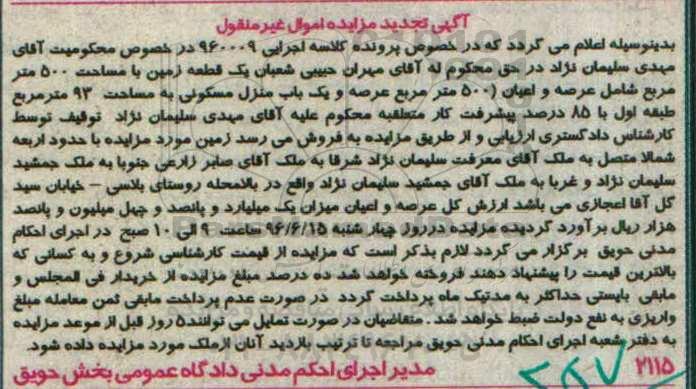 آگهی تجدید مزایده اموال غیر منقول
بدینوسیله اعلام می گردد که در خصوص پرونده کلاسه اجرایی ۹۶۰۰۰۹ در خصوص محکومیت آقای
مهدی سلیمان نژاد در حق محکوم له آقای مهران حبیبی شعبان یک قطعه زمین با مساحت ۵۰۰ متر
مربع شامل عرصه و اعیان (۵۰۰ متر مربع عرصه و یک باب منزل مسکونی به مساحت ۹۳ مترمربع
طبقه اول با ۸۵ درصد پیشرفت کار متعلقبه محکوم علیه آقای مهدی سلیمان نژاد توقیف توسط
کارشناس دادگستری ارزیابی و از طریق مزایده به فروش می رسد زمین مورد مزایده با حدود اربعه
شمالا متصل به ملک آقای معرفت سلیمان نژاد شرقا به ملک آقای صابر زارعی جنوبا به ملک جمشید
سلیمان نژاد و غربا به ملک آقای جمشید سلیمان نژاد واقع در بالامحله روستای بلاسی – خیابان سید
گل آقا اعجازی می باشد ارزش کل عرصه و اعیان میزان یک میلیارد و پانصد و چهل میلیون و پانصد
هزار ریال برآورد گردیده مزایده درروز چهار شنبه ۹۶/۶/۱۵ ساعت ۹ الی ۱۰ صبح در اجرای احکام
مدنی حویق برگزار می گردد لازم بذکر است که مزایده از قیمت کارشناسی شروع و به کسانی که
بالاترین قیمت را پیشنهاد دهند فروخته خواهد شد ده درصد مبلغ مزایده از خریدار فی المجلس و
مابقی بایستی حداکثر به مدتیک ماه پرداخت گردد در صورت عدم پرداخت مابقی ثمن معامله مبلغ
واریزی به نفع دولت ضبط خواهد شد . متقاضیان در صورت تمایل می توانند۵ روز قبل از موعد مزایده
به دفتر شعبه اجرای احکام مدنی حویق مراجعه تا ترتیب بازدید آنان ازملک مورد مزایده داده شود.
۲۱۱۵ مدیر اجرای احکم مدنی دادگاه عمومی بخش حویق